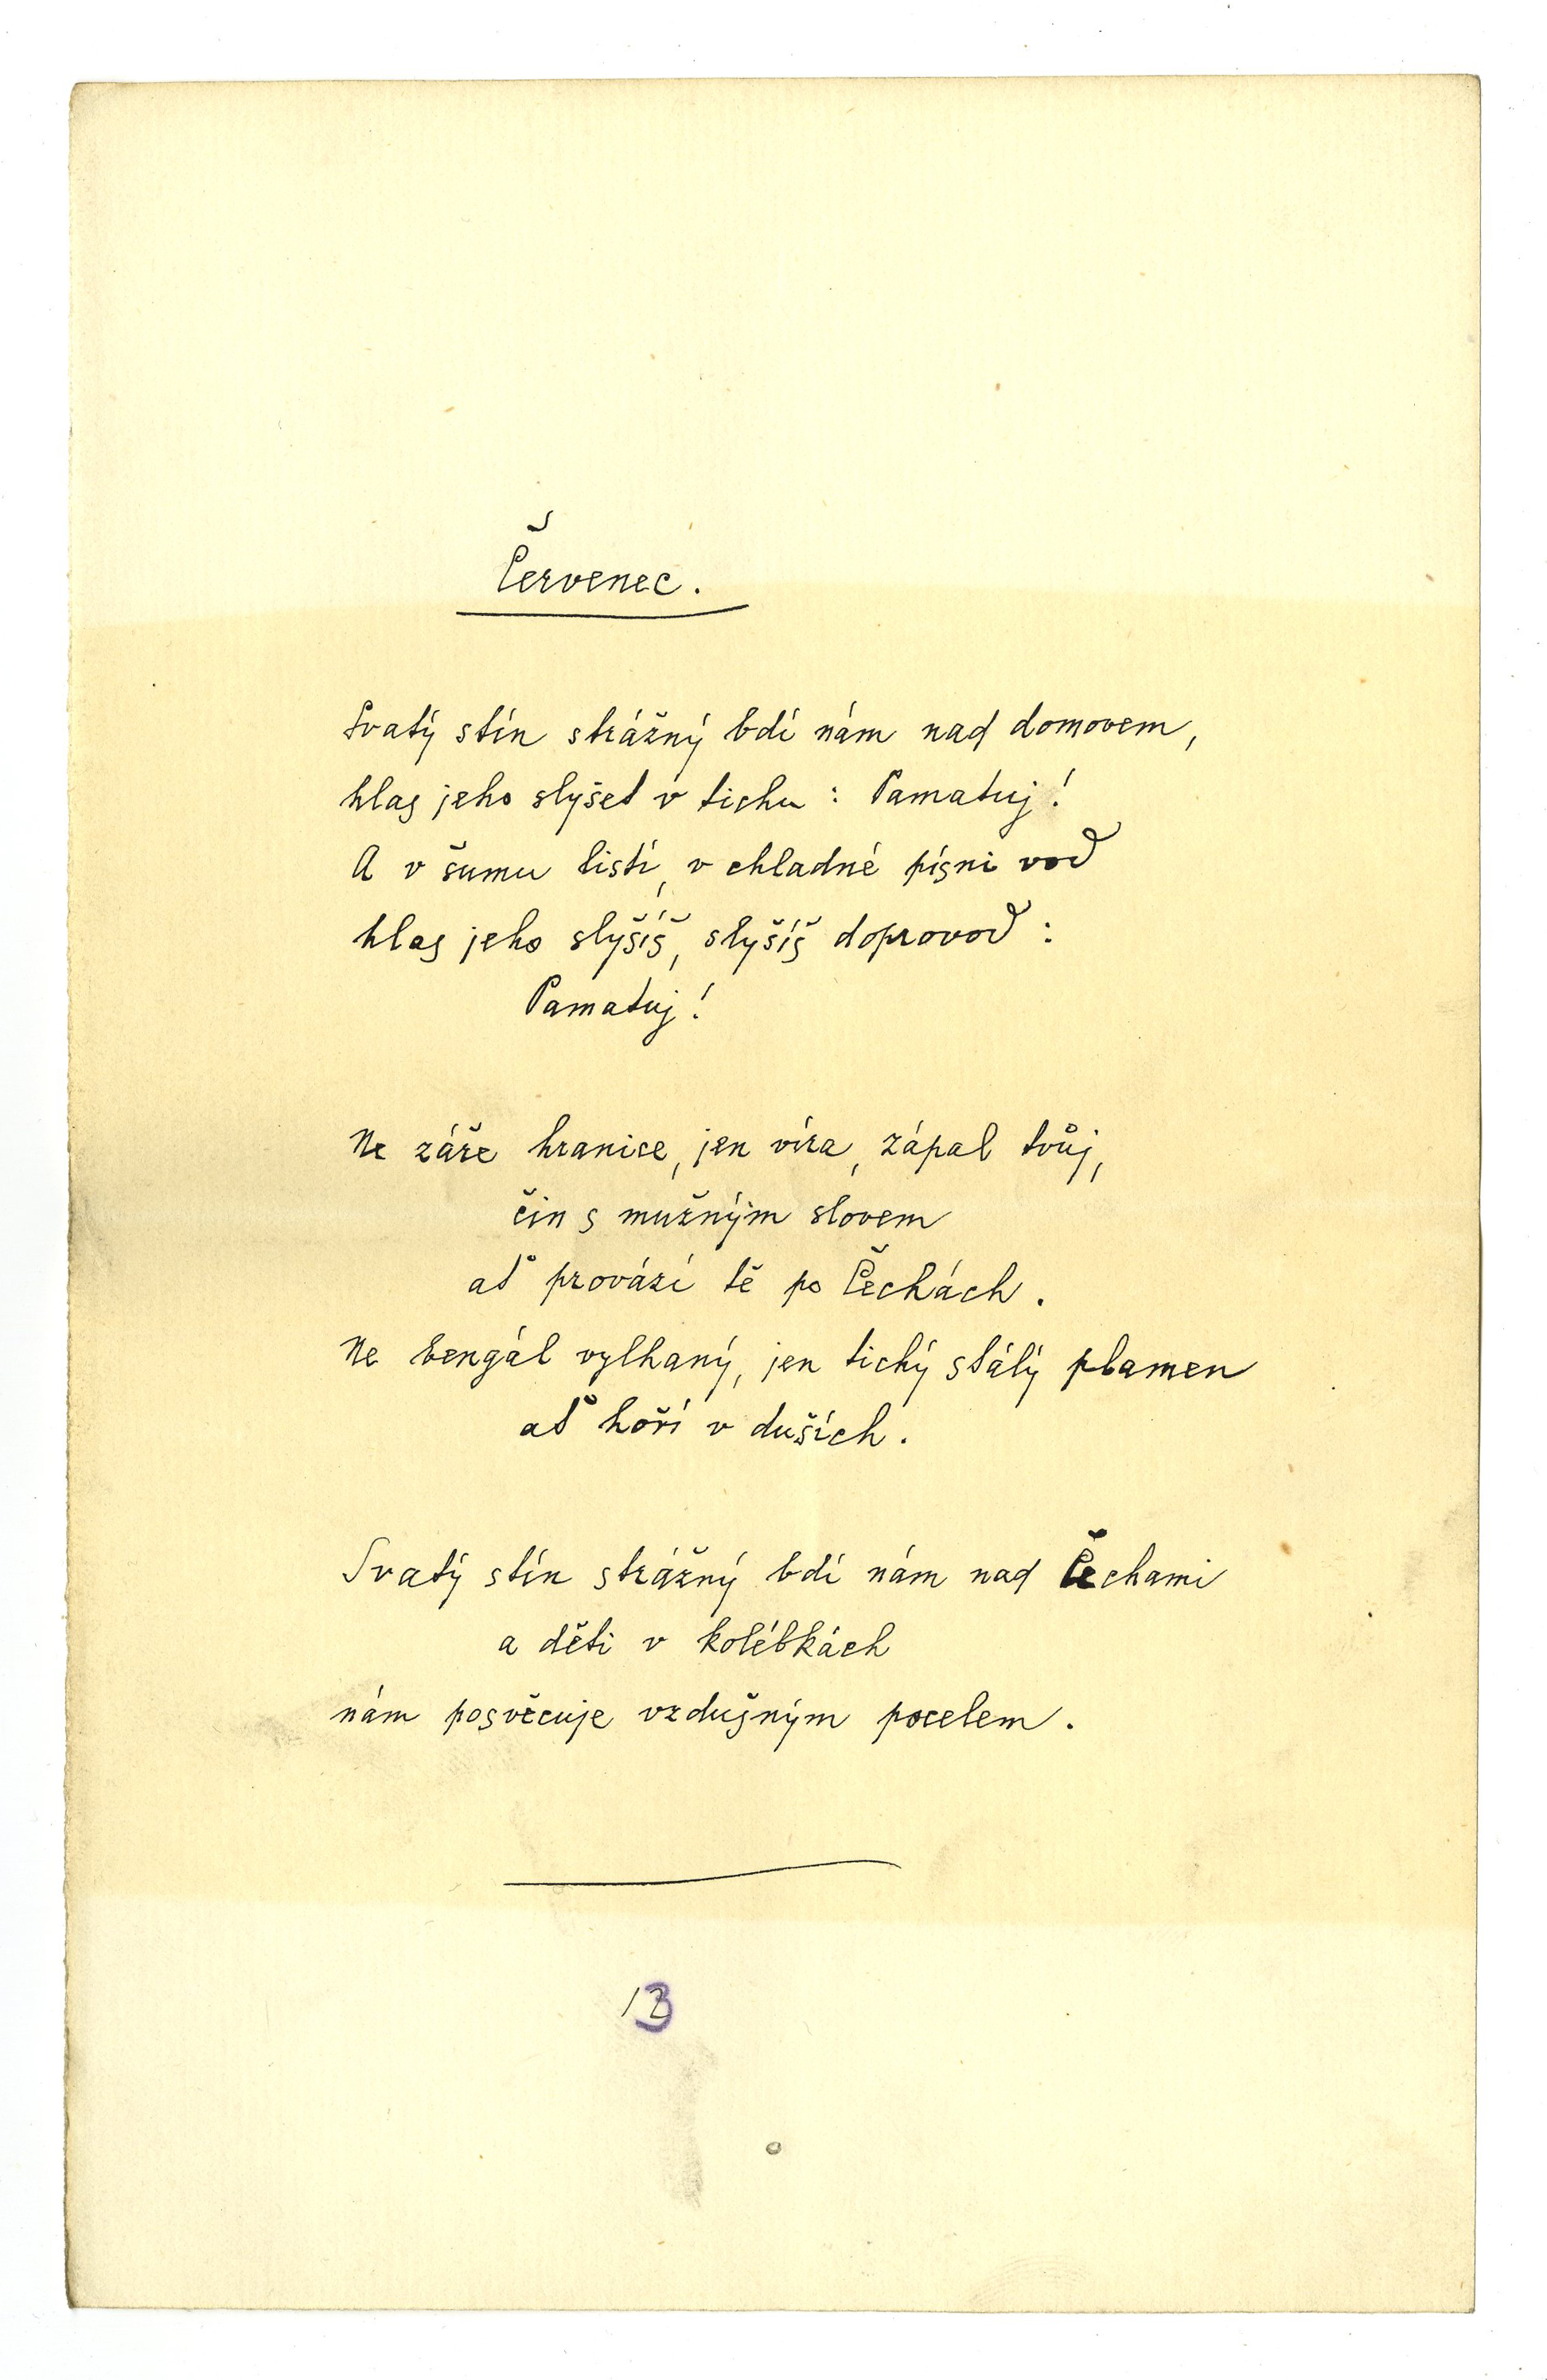 Červenec.
Svatý stín strážný bdí nám nad domovem,
hlas jeho slyšet v tichu: Pamatuj!
A v šumu listí, v chladné písni vod
hlas jeho slyšíš, slyšíš doprovod:
Pamatuj!
Ne záře hranice, jen víra, zápal tvůj,
čin s mužným slovem
ať provází tě po Čechách.
Ne bengál vylhaný, jen tichý stálý plamen
ať hoří v duších.
Svatý stín strážný bdí nám nad Čechami
a děti v kolébkách
nám posvěcuje vzdušným pocelem.
13